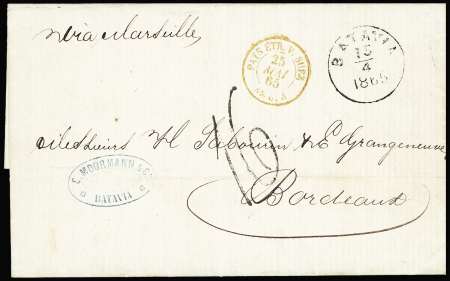 via Marseille
PAYS ETR. V. SUEZ
25
MAI
65
BATAVIA
15/4
1865
Messieurs H Sabourin & E Grangeneuve
Bordeaux
E. MOORMANN & Co
BATAVIA